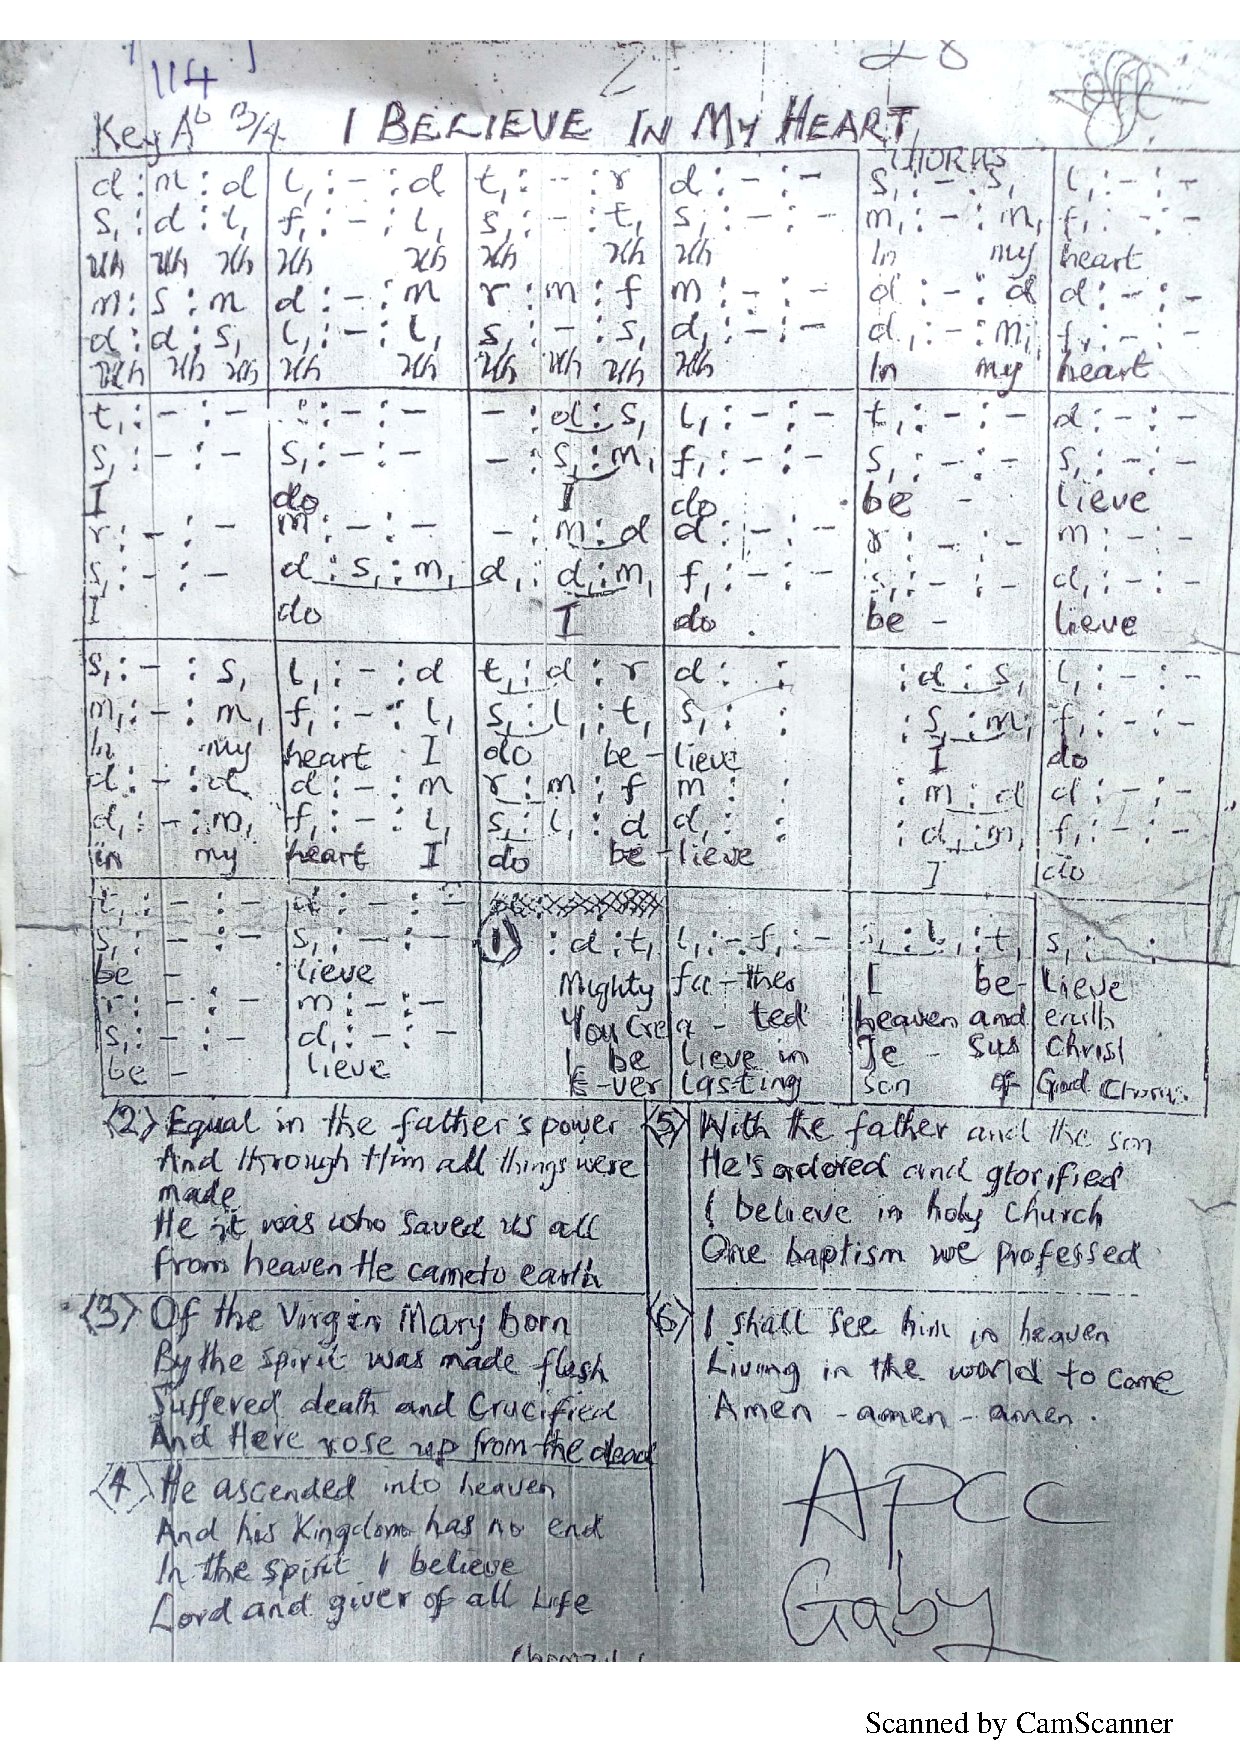 114
28
Key Ab 3/4 I BELIEVE IN MY HEART
CHORUS
d : m : d | l, : - : d | t, : - : r | d : - : - | s, : - : s, | l, : - : -
s, : d : l, | f, : - : l, | s, : - : t, | s, : - : - | m, : - : m, | f, : - : -
Uh Uh Uh Uh Uh Uh Uh Uh In my heart
m : s : m | d : - : m | r : m : f | m : - : - | d : - : d | d : - : -
d : d : s, | l, : - : l, | s, : - : s, | d, : - : - | d, : - : m, | f, : - : -
Uh Uh Uh Uh Uh Uh Uh Uh Uh In my heart
t, : - : - | : - : - | - : d : s, | l, : - : - | t, : - : - | d : - : -
s, : - : - | s, : - : - | - : s, : m, | f, : - : - | s, : - : - | s, : - : -
I do I do be - lieve
r : - : - | m : - : - | - : m : d | d : - : - | r : - : - | m : - : -
s, : - : - | d : s, : m, | d, : d, : m, | f, : - : - | s, : - : - | d, : - : -
I do I do . be - lieve
s, : - : s, | l, : - : d | t, : d : r | d : : | : d : s, | l, : - : -
m, : - : m, | f, : - : l, | s, : l, : t, | s, : : | : s, : m, | f, : - : -
In my heart I do be - lieve I do
d : - : d | d : - : m | r : m : f | m : : | : m : d | d : - : -
d, : - : m, | f, : - : l, | s, : l, : d | d, : : | : d, : m, | f, : - : -
in my heart I do be - lieve I do
t, : - : - | d : - : -
s, : - : - | s, : - : - | 1 : d : t, | l, : - f, : - | s, : l, : t, | s, : :
be - lieve
r : - : - | m : - : -
s, : - : - | d, : - : -
be - lieve
Mighty fa - ther I be - lieve
You Crea - ted heaven and earth
I be lieve in Je - sus Christ
E - ver lasting son of God Chorus.
<2> Equal in the father's power
And through Him all things were
made
He it was who saved us all
From heaven He came to earth
<3> Of the Virgin Mary born
By the spirit was made flesh
Suffered death and Crucified
And Here rose up from the dead
<4> He ascended into heaven
And his Kingdom has no end
In the spirit I believe
Lord and giver of all Life
<5> With the father and the son
He's adored and glorified
I believe in holy Church
One baptism we professed
<6> I shall see him in heaven
Living in the world to come
Amen - amen - amen .
APCC
Gaby
Scanned by CamScanner